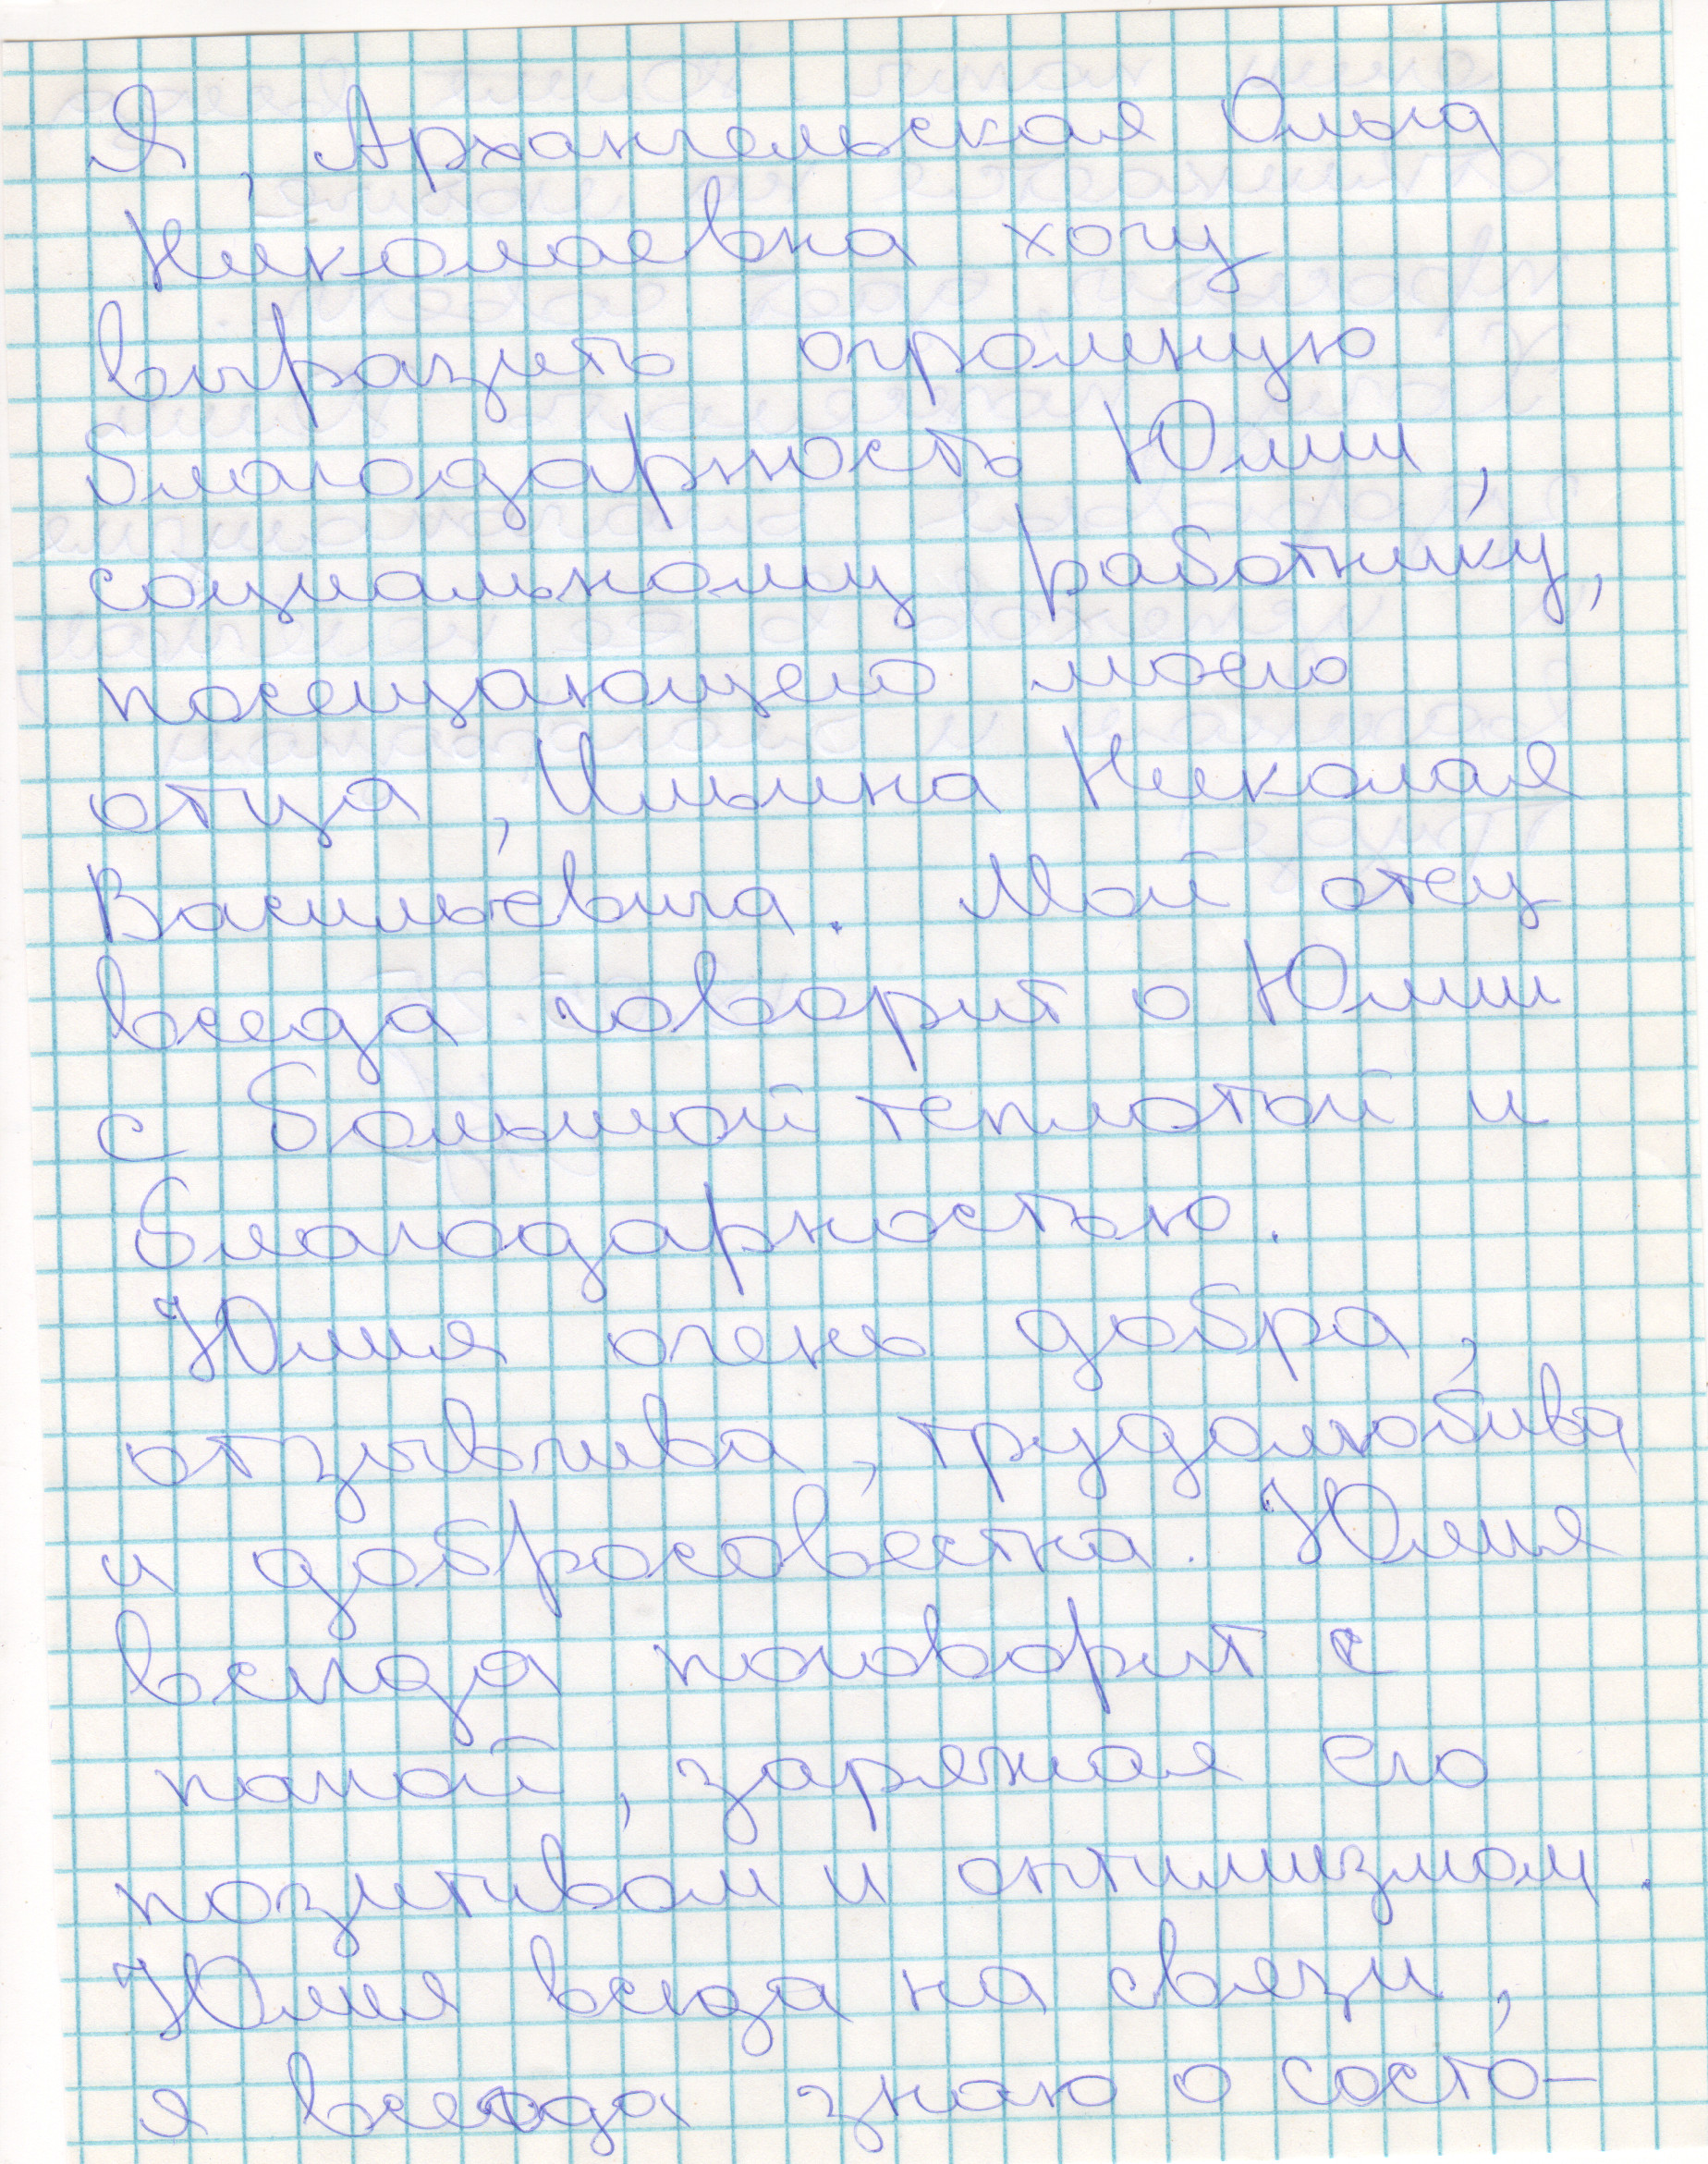 Я, Архангельская Ольга
Николаевна хочу
выразить огромную
благодарность Юлии,
социальному работнику,
посещающего моего
отца, Ильина Николая
Васильевича. Мой отец
всегда говорит о Юлии
с большой теплотой и
благодарностью.
Юлия очень добра,
отзывчива, трудолюбива
и добросовестна. Юлия
всегда поговорит с
папой, заряжая его
позитивом и оптимизмом.
Юлия всегда на связи,
я всегда знаю о состо-